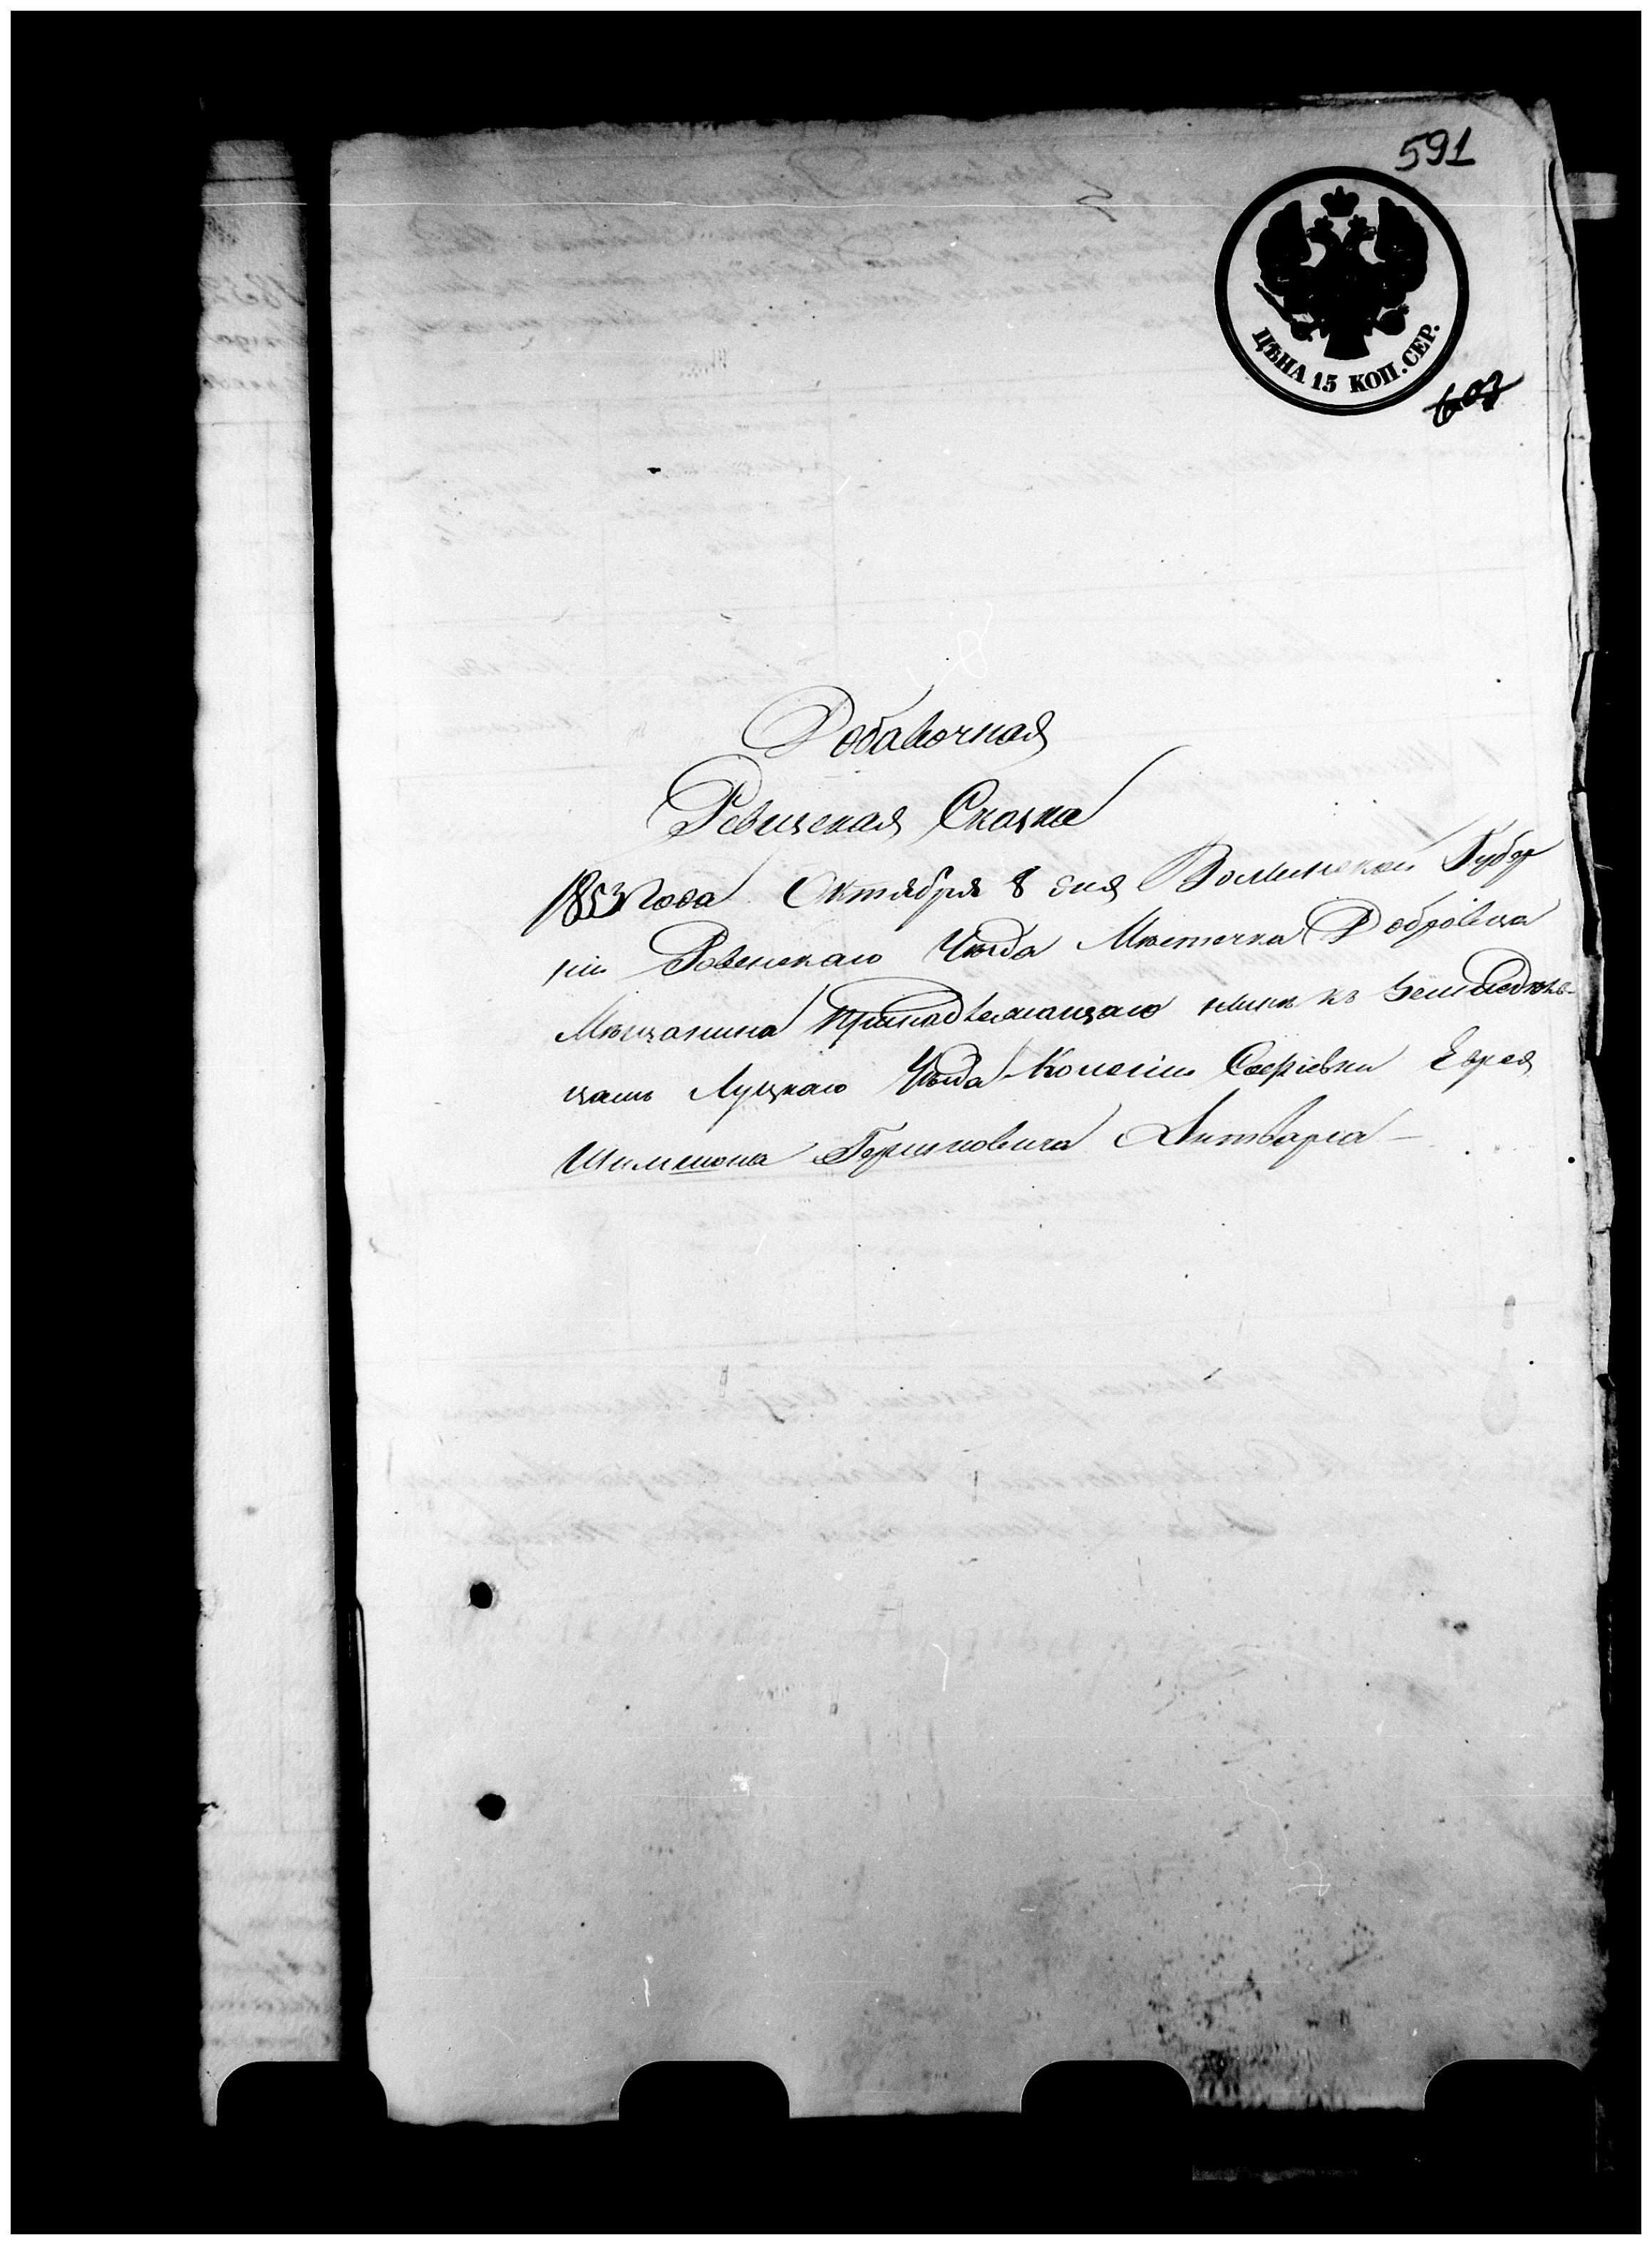 591
ЦѢНА 15 КОП. СЕР.
607
Добавочная
Ревизская Сказка
1853 Года Октября 8 дня Волынской Губер
ніи Ровенскаго Уѣзда Мѣстечка Домбровица
Мѣщанина принадлежащаго нынѣ къ Земледѣль-
цамъ Луцкаго Уѣзда Колоніи Софіевки Еврея
Шимшона Гершковича Литвара